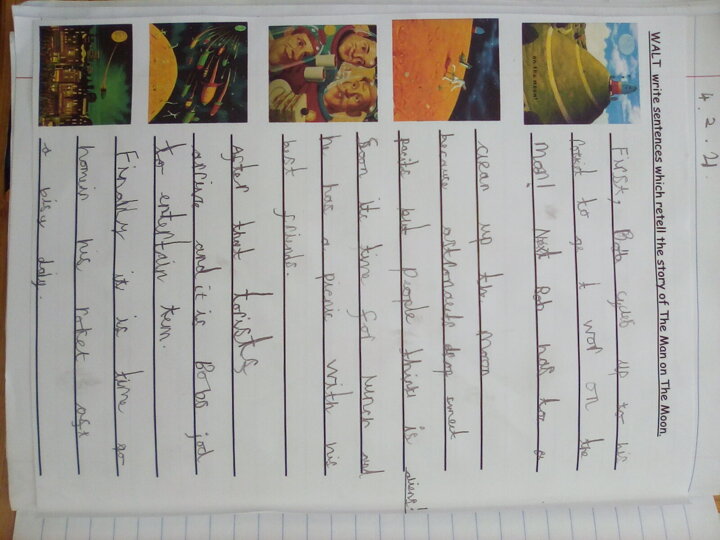 4.2.21
WALT write sentences which retell the story of The Man on The Moon
on the moon!
First, Bob cycles up to his
roket to go t wor on the
Moon! Next Bob has to
clean up the moon
because astronauts drop
but people thinks is aliens!
Soon its time for lunch and
he has a picnic with his
best friends.
After that torists
arrive and it is Bobs jod
to entertain tem.
Finally it is time go
home in his roket
a bisy day.